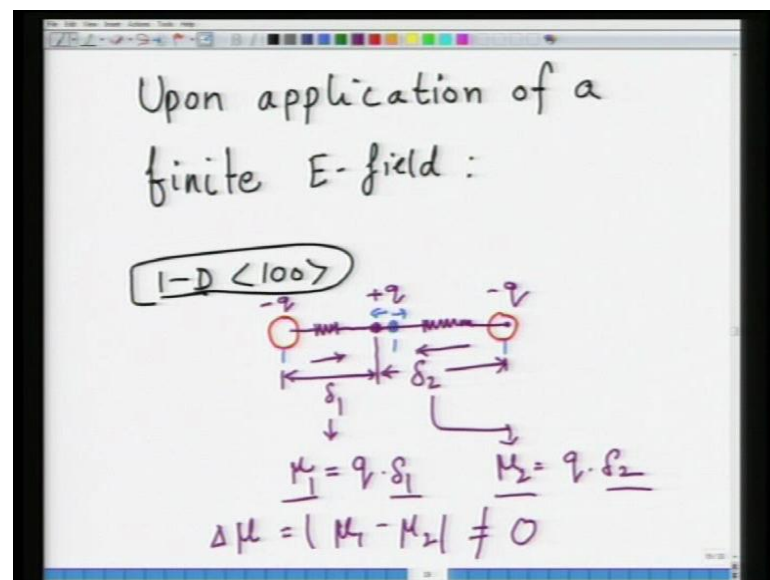 Upon application of a
finite E-field :
1-D <100>
-q +q -q
δ1 δ2
μ1 = q·δ1 μ2 = q·δ2
Δμ = |μ1 - μ2| ≠ 0